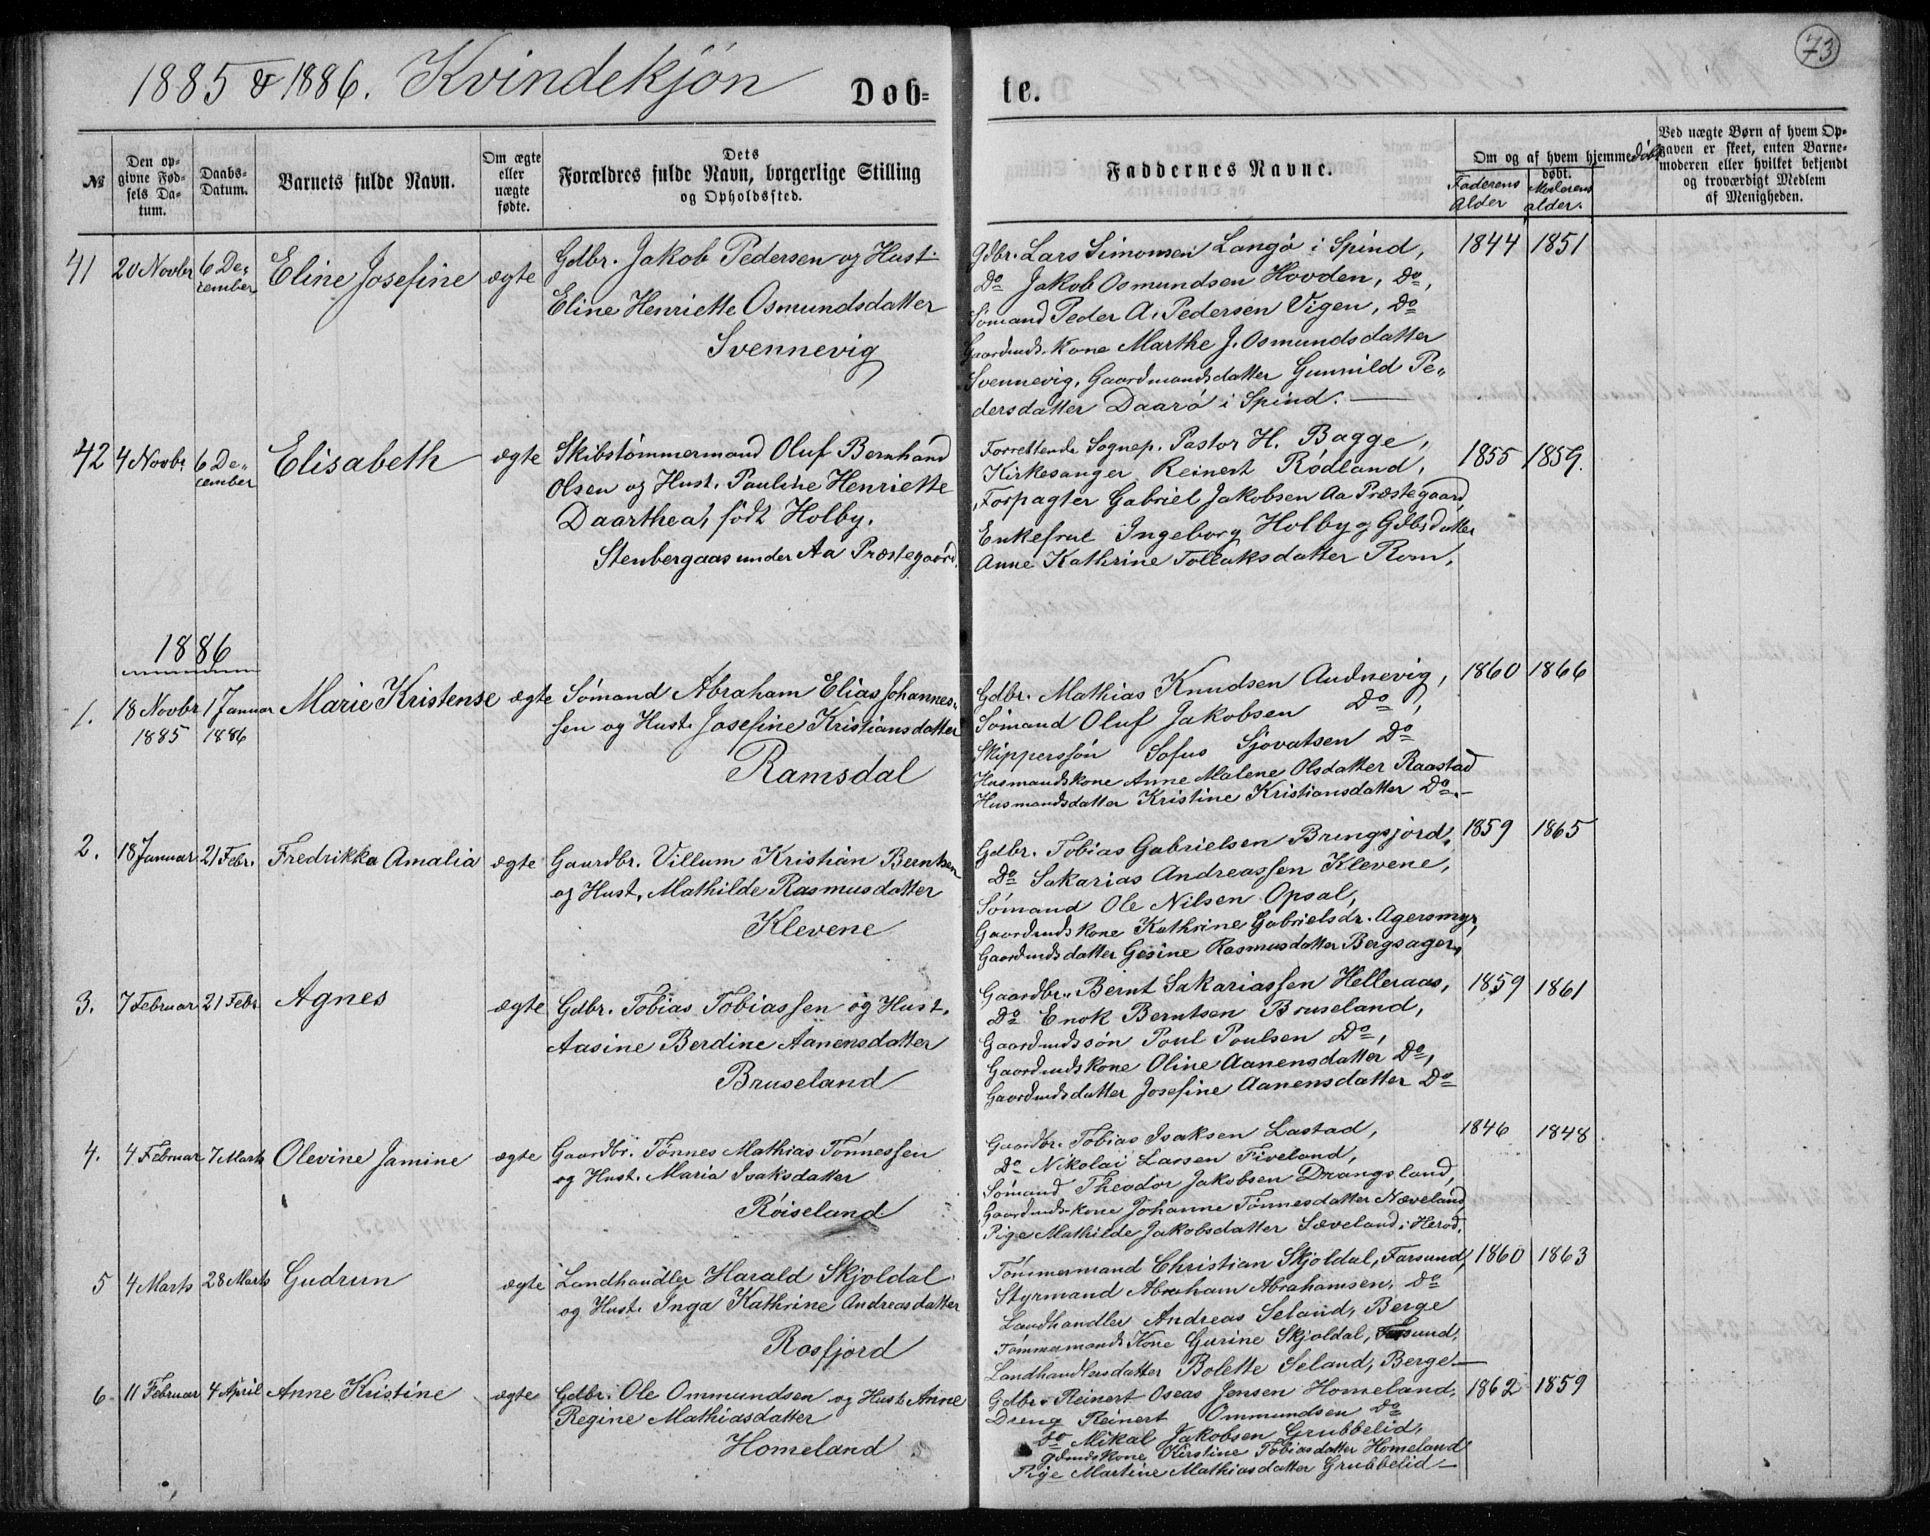 73
1885 & 1886. Kvindekjøn Døb= te.
№
Den op-
givne Fød-
sels Da-
tum.
Daabs-
Datum.
Barnets fulde Navn.
Om ægte
eller
uægte
fødte.
Dets
Forældres fulde Navn, borgerlige Stilling
og Opholdssted.
Faddernes Navne.
Om og af hvem hjemmedøbt
døbt.
Faderens
Alder
Moderens
alder.
Ved uægte Børn af hvem Op-
gaven er skeet, enten Barne-
moderen eller hvilket bekjendt
og troværdigt Medlem
af Menigheden.
41 20 Novbr 6 De-
cember
Eline Josefine ægte
Gdbr. Jakob Pedersen og Hust.
Eline Henriette Osmundsdatter
Svennevig
Gdbr. Lars Simonsen Langø i Spind,
Do Jakob Osmundsen Hovden, Do,
Sømand Peder A. Pedersen Vigen, Do
Gaardmds. kone Marthe J. Osmundsdatter
Svennevig, Gaardmandsdatter Gunnild Pe-
dersdatter Daarø i Spind.
1844 1851
42 4 Novbr 6 De-
cember
Elisabeth ægte
Skibstømmermand Oluf Bernhard
Olsen og Hust. Pauline Henriette
Daarthea, født Holby.
Stenbergaas under Aa Præstegaard.
Forrettende Sognep. Pastor H. Bagge,
Kirkesanger Reinert Rødland,
Forpagter Gabriel Jakobsen Aa Præstegaard,
Enkefrue Ingeborg Holby og Gdbsdatter
Anne Kathrine Tollaksdatter Rom.
1855 1859.
1886
1. 18 Novbr 1 Januar
1885 1886
Marie Kristense ægte
Sømand Abraham Elias Johannes-
sen og Hust. Josefine Kristiansdatter
Ramsdal
Gdbr. Mathias Knudsen Audnevig,
Sømand Oluf Jakobsen Do,
Skipperssøn Sofus Sjovatsen Do
Husmandskone Anne Malene Olsdatter Raastad
Husmandsdatter Kristine Kristiansdatter Do.
1860 1866
2. 18 Januar 21 Febr. Fredrikka Amalia ægte
Gaardbr. Villum Kristian Berntsen
og Hust. Mathilde Rasmusdatter
Klevene
Gdbr. Tobias Gabrielsen Bringsjord,
Do Sakarias Andreassen Klevene,
Sømand Ole Nilsen Opsal,
Gaardmds kone Kathrine Gabrielsdr. Agersmyr,
Gaardmdsdatter Gesine Rasmusdatter Bergsager,
1859 1865
3. 7 Februar 21 Febr. Agnes ægte
Gdbr. Tobias Tobiassen og Hust.
Aasine Berdine Aanensdatter
Bruseland
Gaardbr. Bernt Sakariassen Helleraas,
Do Enok Berntsen Bruseland,
Gaardmdssøn Poul Poulsen Do,
Gaardmdskone Oline Aanensdatter Do,
Gaardmdsdatter Josefine Aanensdatter Do
1859 1861
4. 4 Februar 7 Marts Olevine Jamine ægte
Gaardbr. Tønnes Mathias Tønnessen
og Hust. Maria Isaksdatter
Røiseland
Gaardbr. Tobias Isaksen Lastad,
Do Nikolai Larsen Fiveland,
Sømand Theodor Jakobsen Drangsland,
Gaardmds kone Johanne Tønnesdatter Næveland,
Pige Mathilde Jakobsdatter Sæveland i Herød.
1846 1848
5 4 Marts 28 Marts Gudrun ægte
Landhandler Harald Skjoldal
og Hust. Inga Kathrine Andreasdatter
Rosfjord
Tømmermand Christian Skjoldal, Farsund,
Styrmand Abraham Abrahamsen, Do
Landhandler Andreas Seland, Berge
Tømmermands Kone Gurine Skjoldal, Farsund,
Landhandlersdatter Bolette Seland, Berge
1860 1863
6 11 Februar 4 April Anne Kristine ægte
Gdbr. Ole Ommundsen og Hust. Anne
Regine Mathiasdatter
Homeland
Gdbr. Reinert Oseas Jensen Homeland,
Dreng Reinert Ommundsen Do
Do Mikal Jakobsen Grubbelid,
Gdmdskone Kirstine Tobiasdatter Homeland
Pige Martine Mathiasdatter Grubbelid
1862 1859